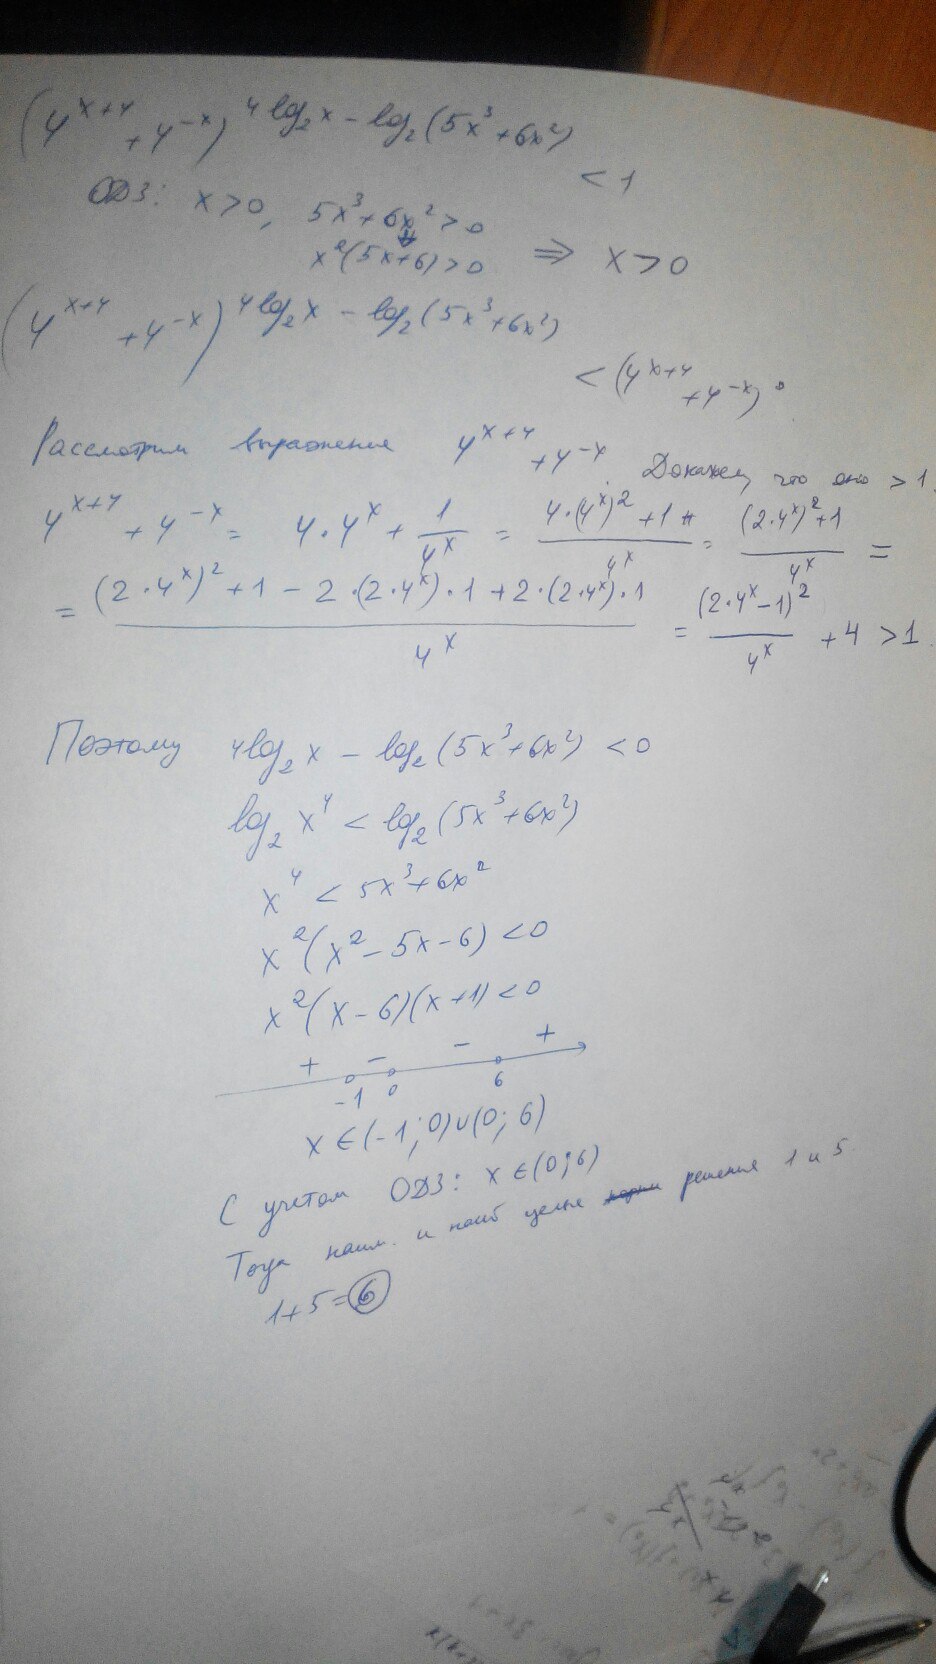 (4^{x+4} + 4^{-x})^{4log_2 x - log_2(5x^3+6x^2)} < 1
ОДЗ: x>0, 5x^3+6x^2>0
x^2(5x+6)>0 ⇒ x>0
(4^{x+4} + 4^{-x})^{4log_2 x - log_2(5x^3+6x^2)} < (4^{x+4} + 4^{-x})^0
Рассмотрим выражение 4^{x+4} + 4^{-x}. Докажем, что оно >1.
4^{x+4} + 4^{-x} = 4·4^x + 1/4^x = (4·(4^x)^2+1)/4^x = ((2·4^x)^2+1)/4^x =
= ((2·4^x)^2+1 - 2·(2·4^x)·1 + 2·(2·4^x)·1)/4^x = (2·4^x-1)^2/4^x + 4 > 1.
Поэтому 4log_2 x - log_2(5x^3+6x^2) < 0
log_2 x^4 < log_2(5x^3+6x^2)
x^4 < 5x^3+6x^2
x^2(x^2-5x-6)<0
x^2(x-6)(x+1)<0
+ - - +
-1 0 6
x∈(-1;0)∪(0;6)
С учетом ОДЗ: x∈(0;6)
Тогда наим. и наиб целые решения 1 и 5
1+5=6